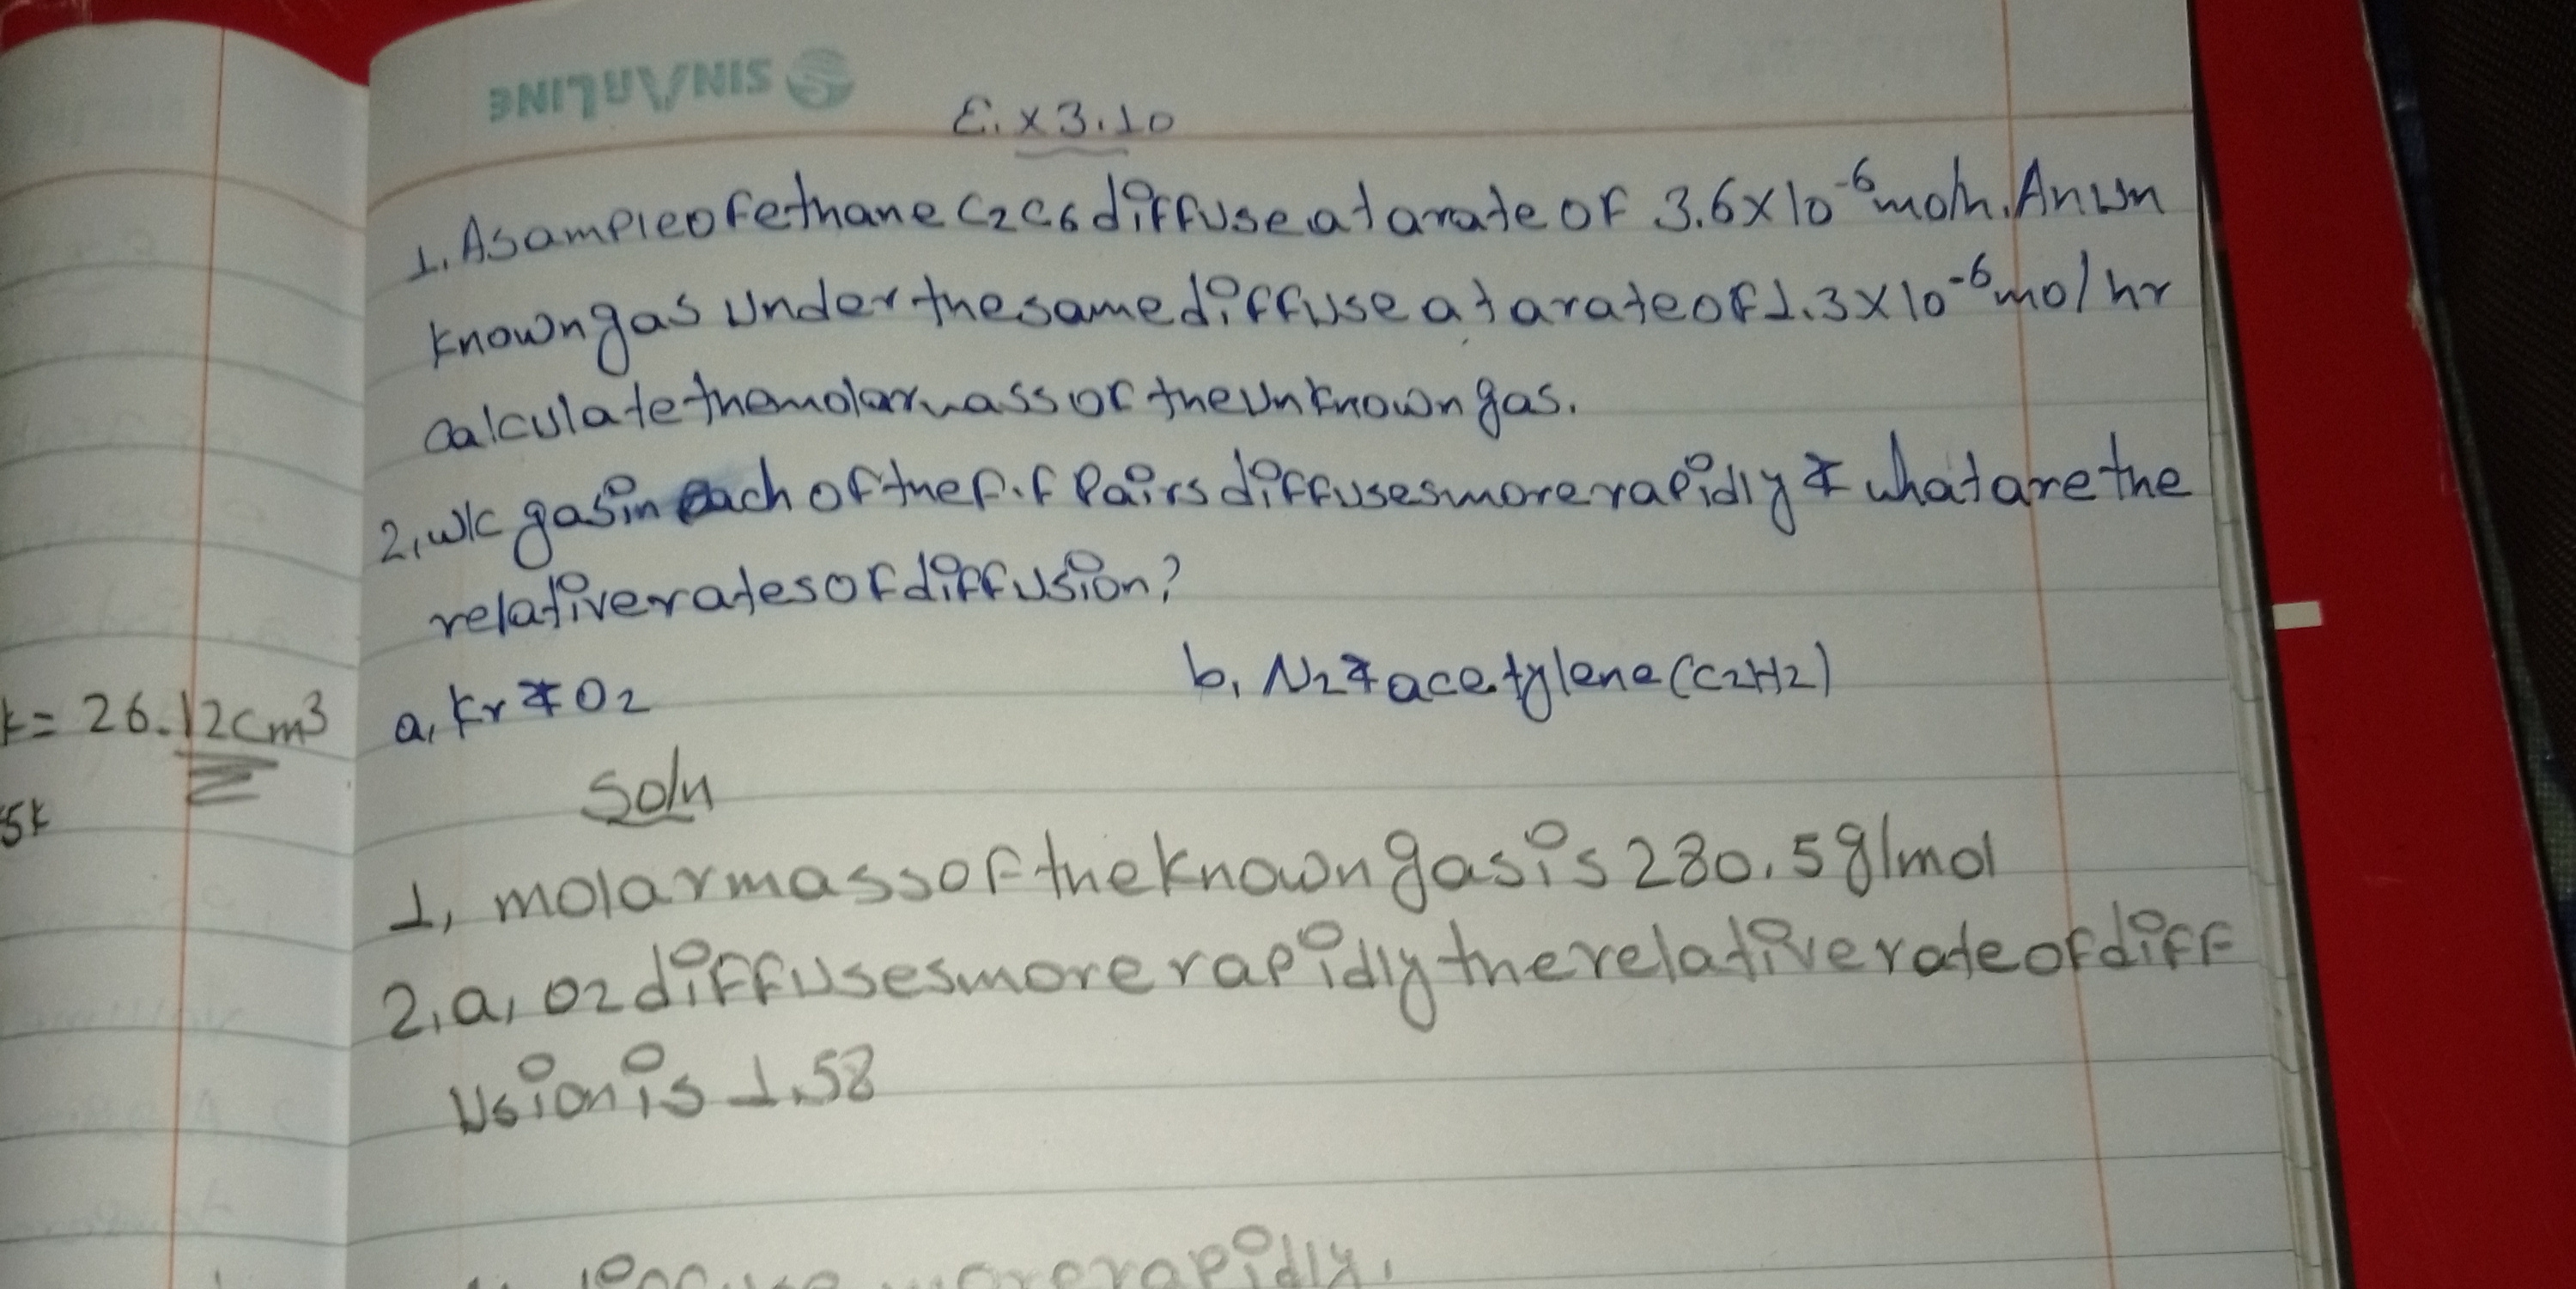 SINARLINE
E.x 3.10
1. A sample of ethane C2C6 diffuse at a rate of 3.6x10-6 mol/h. An un
known gas under the same diffuse at a rate of 1.3x10-6 mol/hr
calculate the molar mass of the unknown gas.
2, w/c gas in each of the f.f Pairs diffuses more rapidly & what are the
relative rates of diffusion?
a, Kr & O2
b, N2 & acetylene (C2H2)
k = 26.12cm3
5k
Soln
1, molar mass of the known gas is 230.5g/mol
2, a, O2 diffuses more rapidly the relative rate of diff
usion is 1.58
more rapidly.